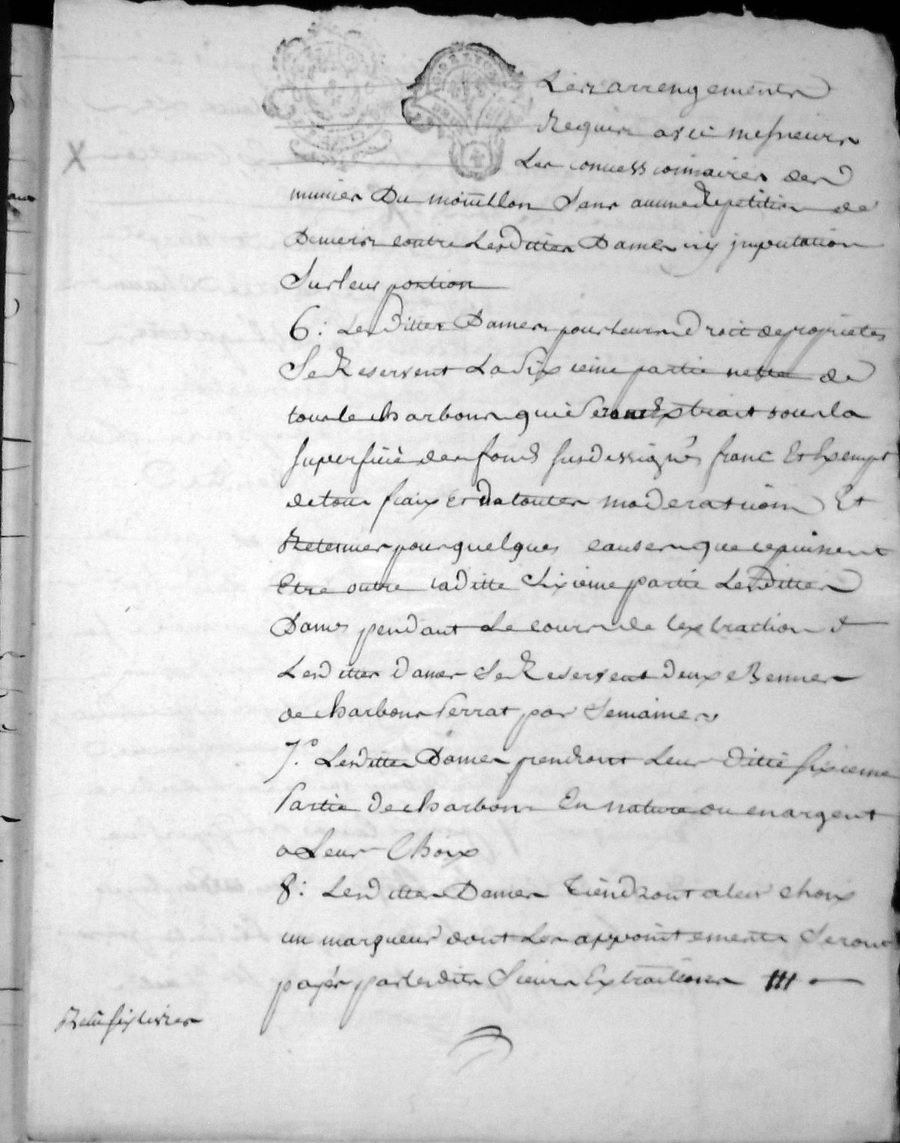 Les arrengements
Requis avec messieurs
Les concessionnaires des
mines Du mouillon Sans aucune Repetition de
Deniers contre Lesdittes Dames ny imputation
Sur leur portion
6: Lesdittes Dames pour leurs droit de proprietes
Se Reservent La Sixieme partie nette de
tout le charbons qui Seront Extrait sous la
superficie des fonds susdessignés franc Et Exempt
de tous fraix Et de toutes moderations Et
Retenues pour quelques causes que ce puissent
Etre outre laditte Sixieme partie Lesdittes
Dames pendant Le cours de lextraction
Lesdittes dames Se Reservent deux Bennes
de charbons Perrat par Semaines
7.° Lesdittes Dames prendront Leur ditte sixieme
Partie de charbons En nature ou en argent
a Leur Choix
8: Lesdittes Dames tiendront a leur choix
un marqueur dont Les appointements Seront
payés par lesdits Sieurs Extractions